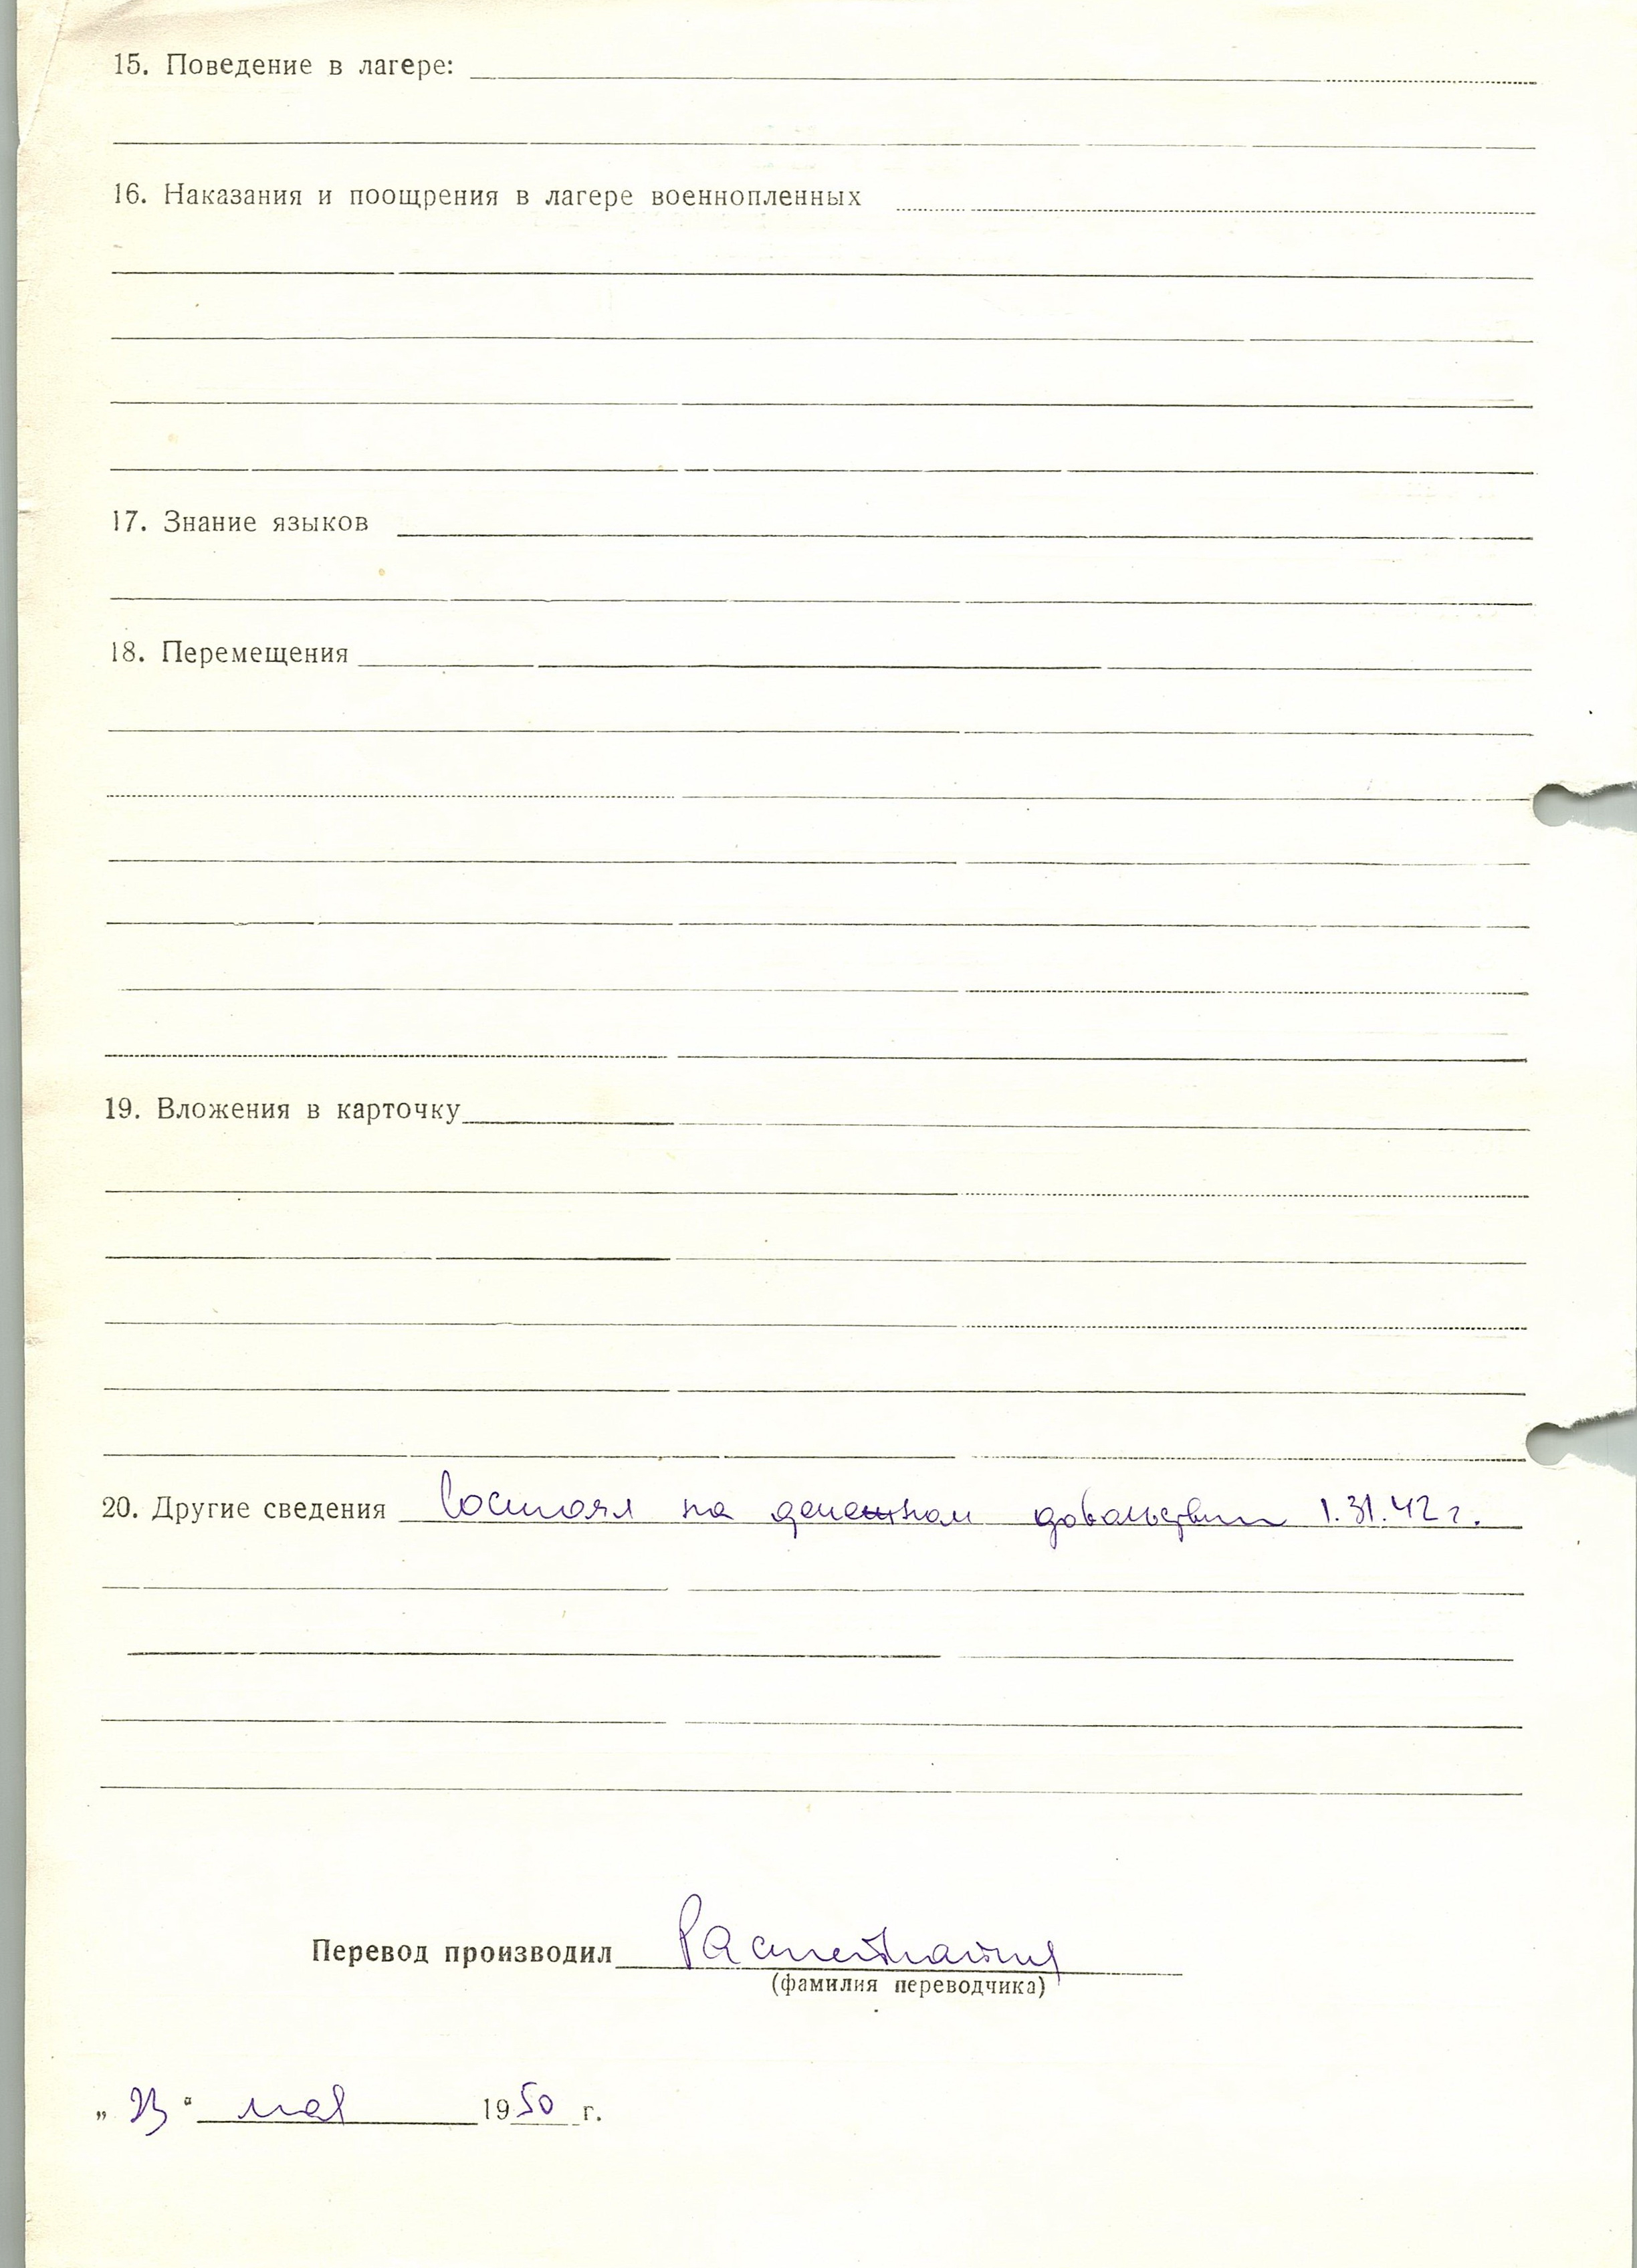 15. Поведение в лагере:
16. Наказания и поощрения в лагере военнопленных
17. Знание языков
18. Перемещения
19. Вложения в карточку
20. Другие сведения Состоял на денежном довольствии 1.31.42 г.
Перевод производил
(фамилия переводчика)
„ 23 “ мая 1950 г.